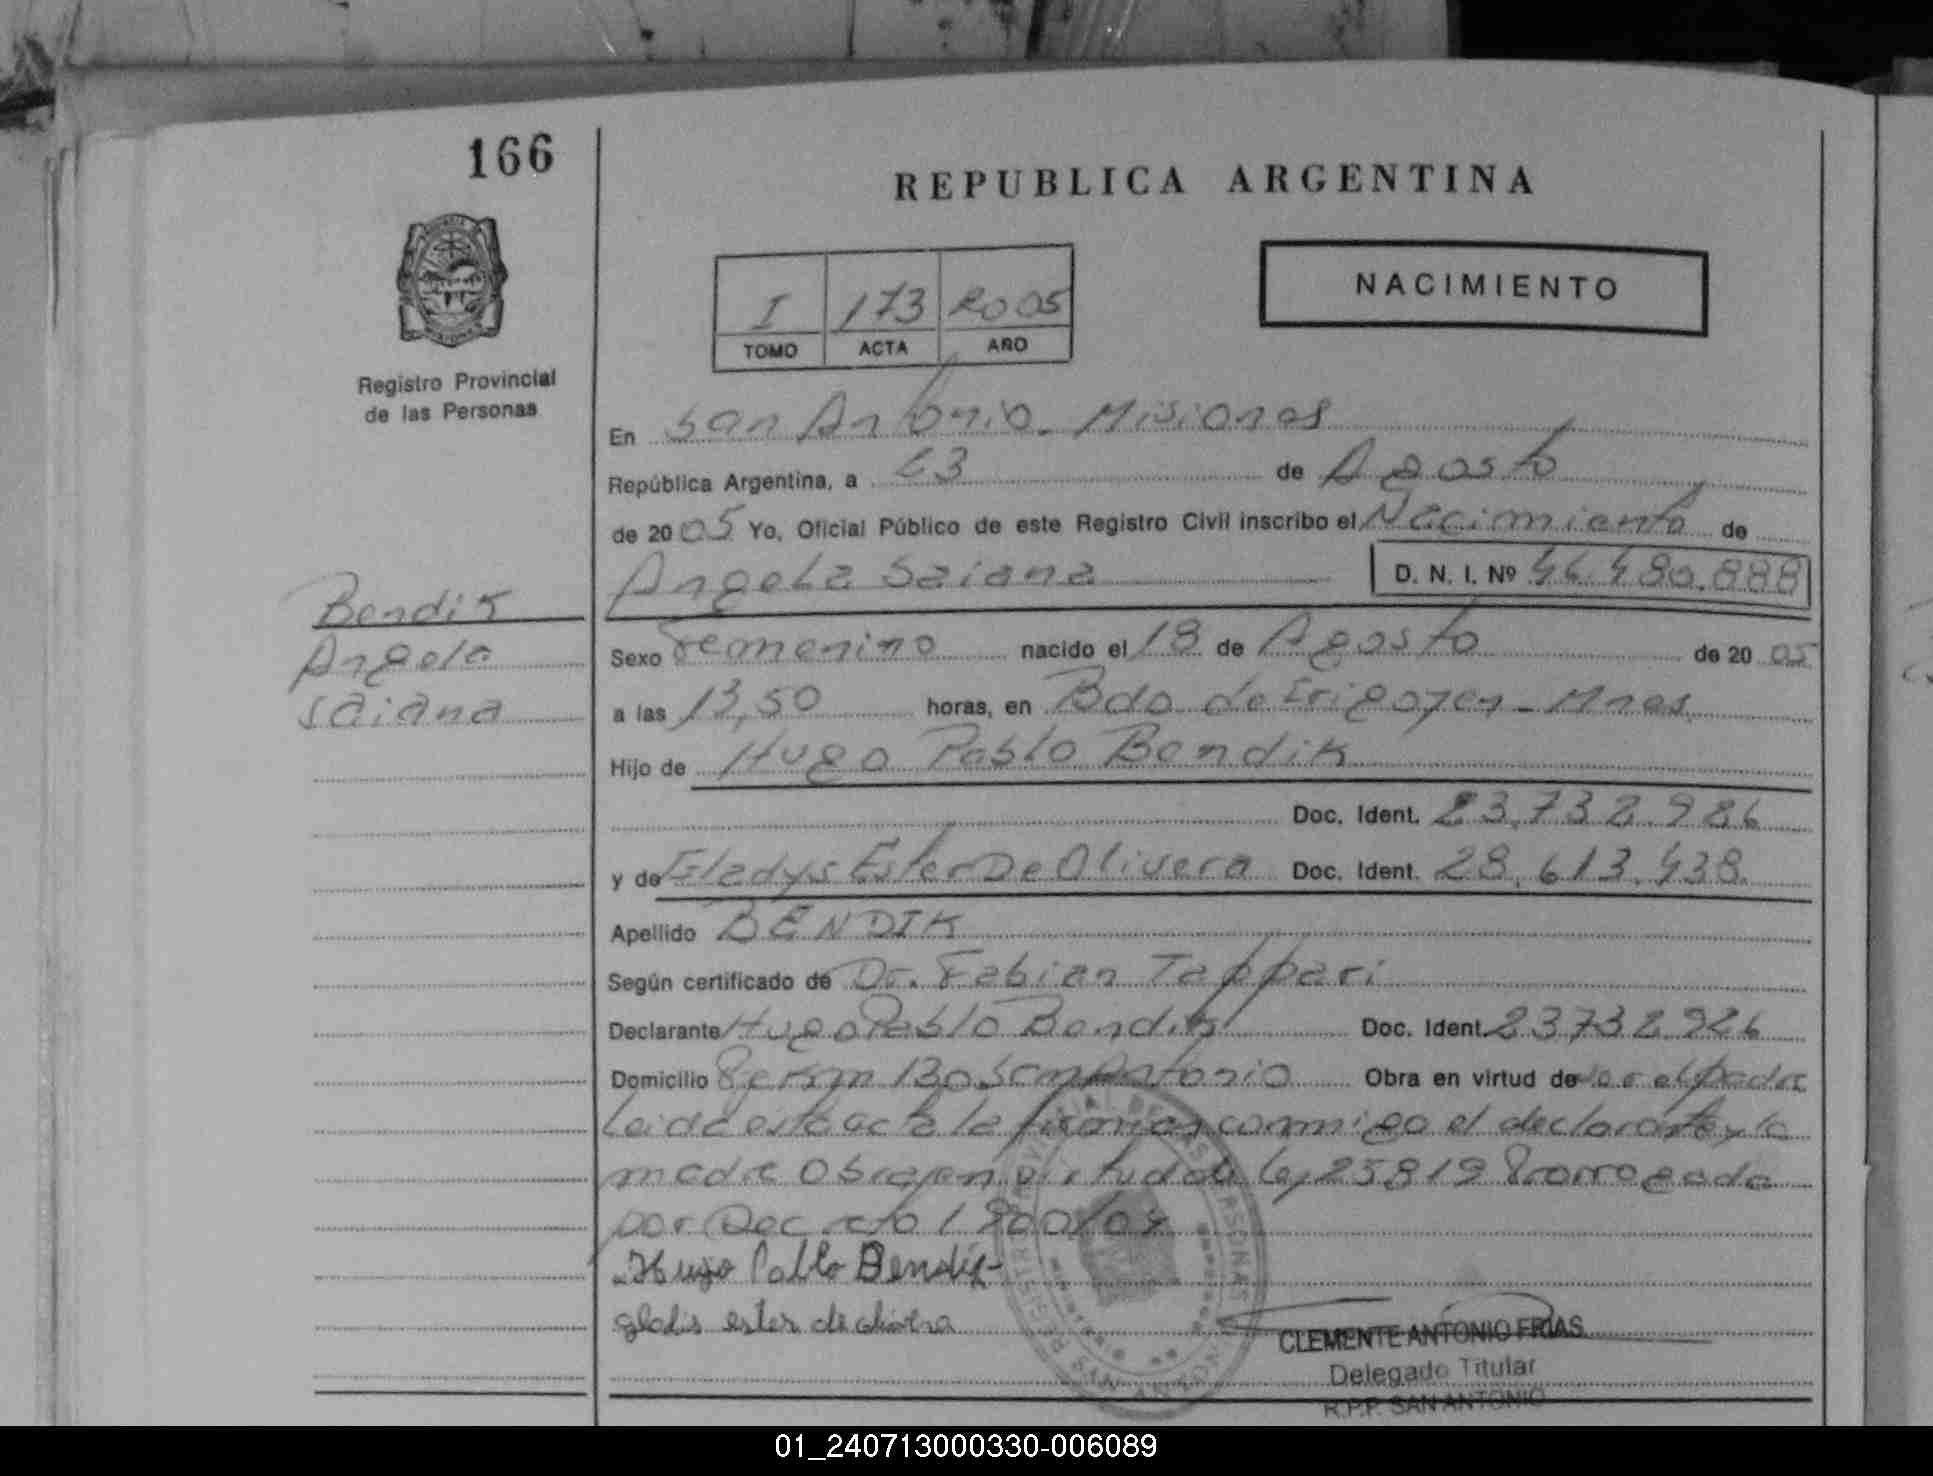 166
REPUBLICA ARGENTINA
NACIMIENTO
I 173 2005
TOMO ACTA AÑO
Registro Provincial
de las Personas
En San Antonio - Misiones
República Argentina, a 23 de Agosto
de 2005 Yo, Oficial Público de este Registro Civil inscribo el Nacimiento de
Angela Saiana D. N. I. Nº 46.480.888
Bendik
Angela
Saiana
Sexo Femenino nacido el 18 de Agosto de 2005
a las 13,50 horas, en Bdo de Irigoyen - Mnes
Hijo de Hugo Pablo Bendik
Doc. Ident. 23.732.926
y de Gladys Ester De Olivera Doc. Ident. 28.613.438
Apellido BENDIK
Según certificado de Dr. Fabian Tappari
Declarante Hugo Pablo Bendik Doc. Ident. 23732926
Domicilio Pje Km 130 San Antonio Obra en virtud de ser el padre
Leida esta acta la firman conmigo el declarante y la
madre Obra en virtud de ley 25819 Prorrogada
por Decreto
Hugo Pablo Bendik
gladis ester de olivera
CLEMENTE ANTONIO FRIAS
Delegado Titular
R.P.P. SAN ANTONIO
01_240713000330-006089